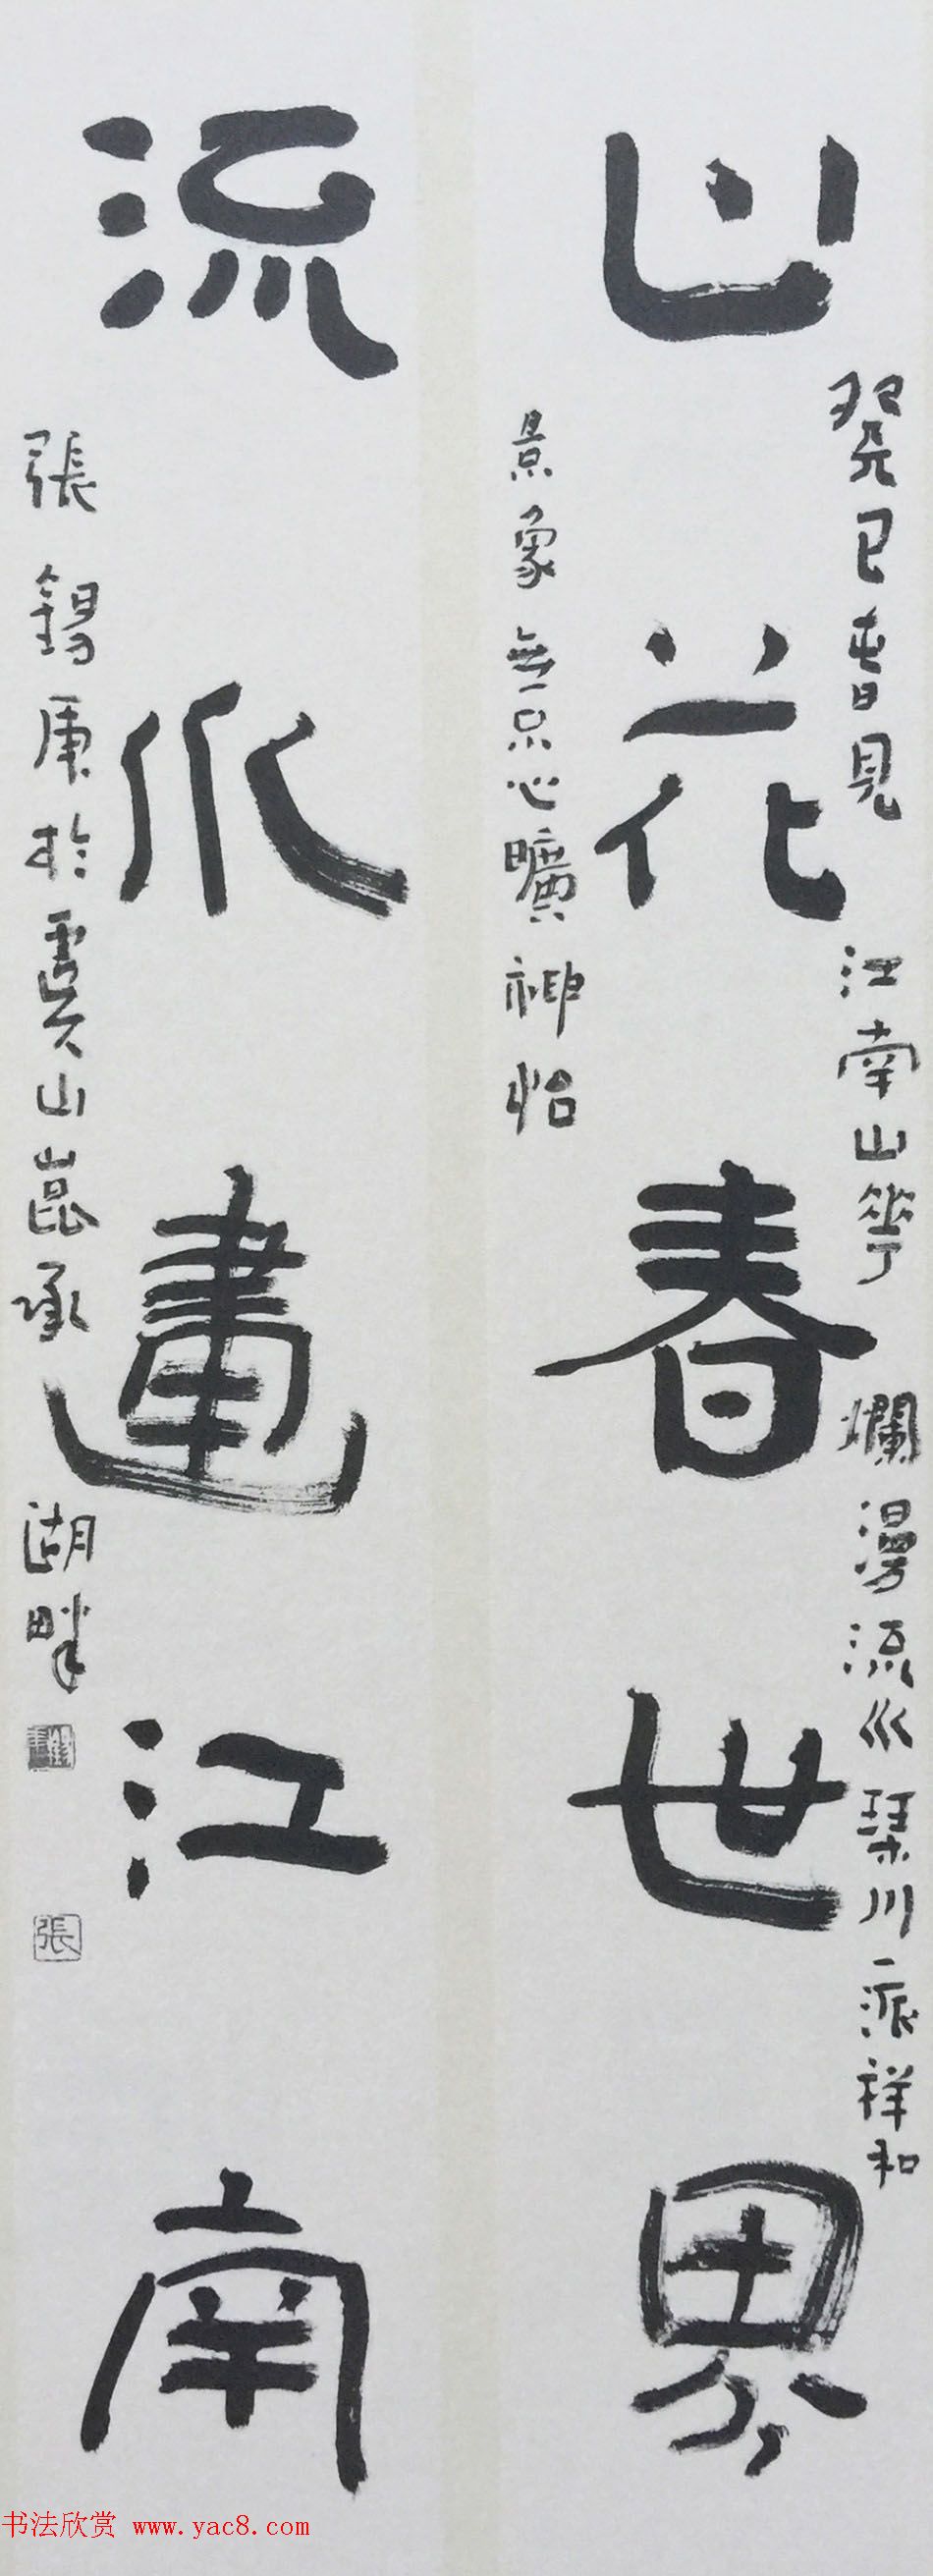 山花春世界
癸巳春見江南山花爛漫流水琴川一派祥和
景象無不心曠神怡
流水畫江南
張錫庚於虞山昆承湖畔
張
书法欣赏 www.yac8.com